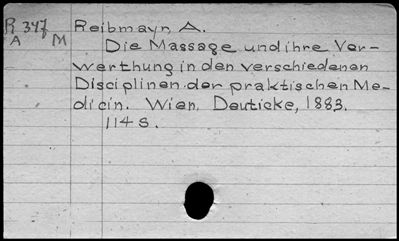 R 347 Reibmayr, A.
A M Die Massage und ihre Ver-
werthung in den verschiedenen
Disciplinen der praktischen Me-
dicin. Wien, Deuticke, 1883.
114 S.